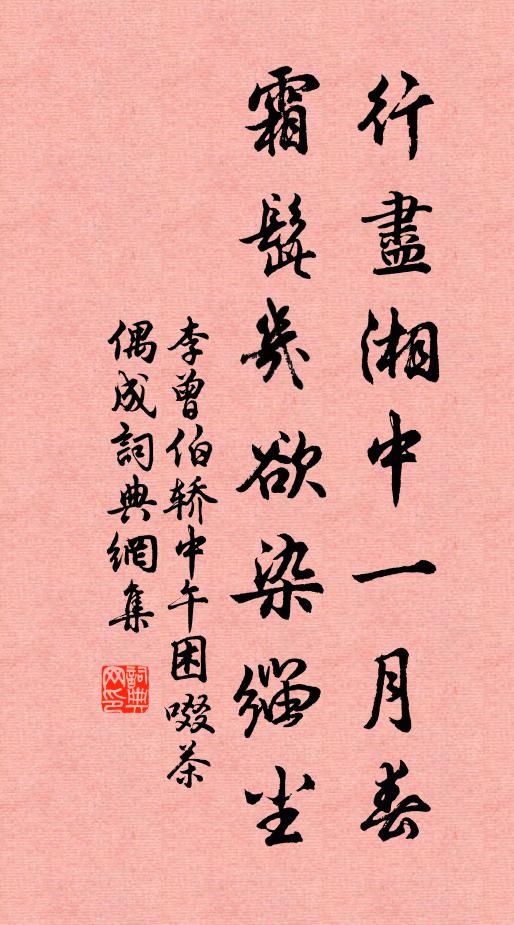 行盡湘中一月春
霜髭幾欲染緇尘
李曾伯轿中午困啜茶
偶成詞典網集
詞典网印